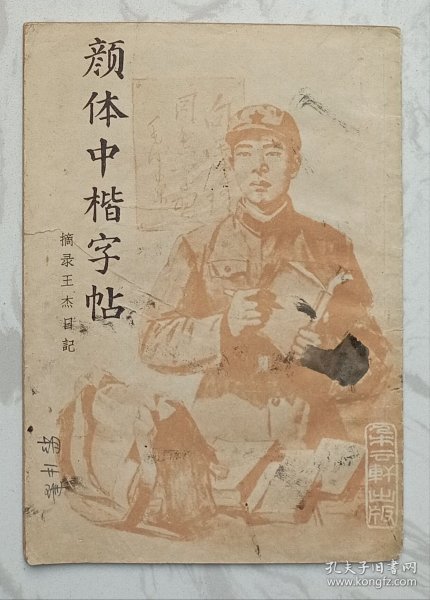 颜体中楷字帖
摘录王杰日記
朵云軒出版
孔夫子旧书网
www.kongfz.com